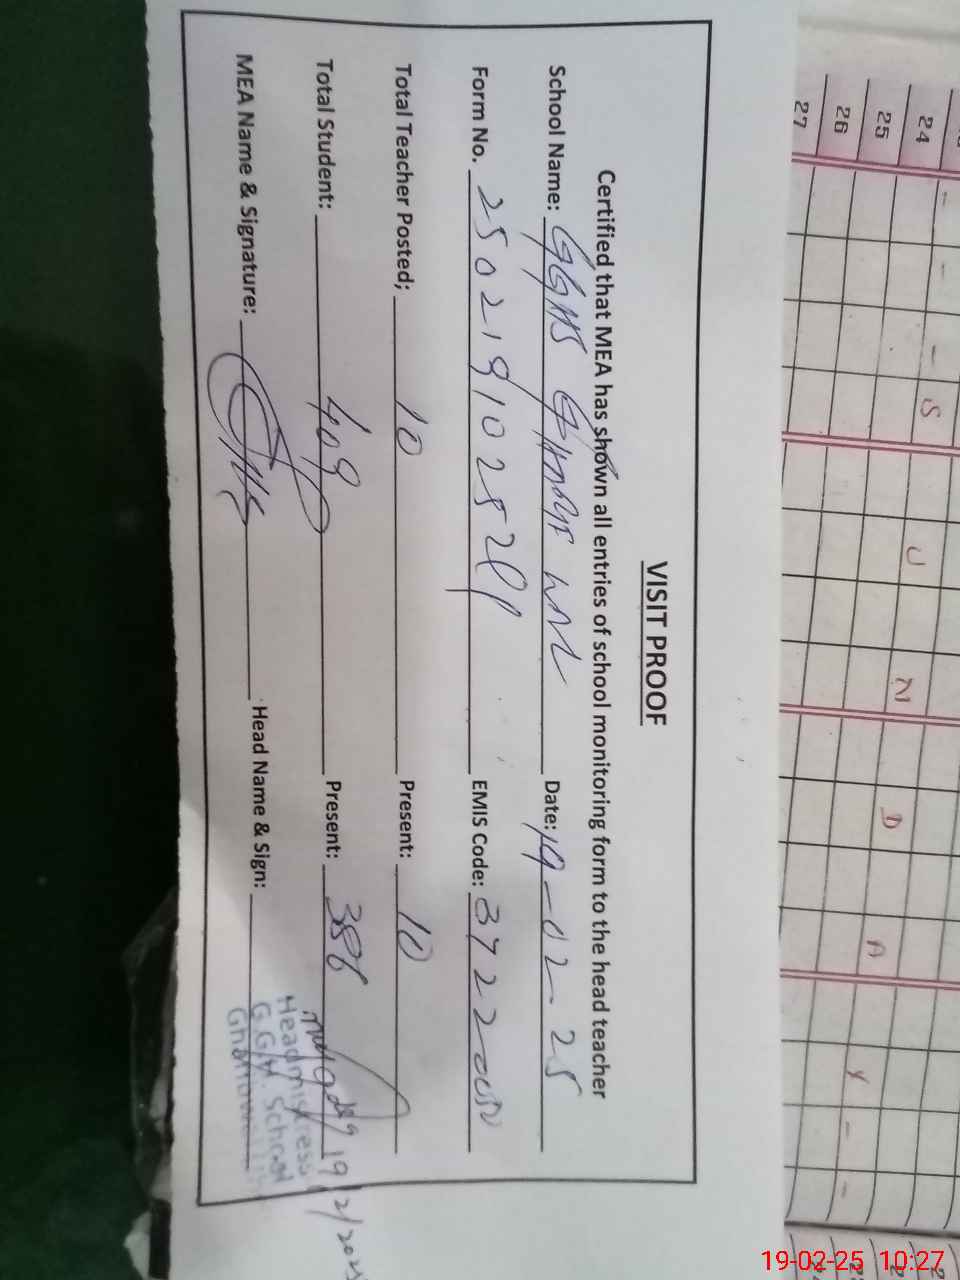 VISIT PROOF
Certified that MEA has shown all entries of school monitoring form to the head teacher
School Name: GGHS Date: 19-02-25
Form No. EMIS Code:
Total Teacher Posted; 10 Present: 10
Total Student: 409 Present: 386
MEA Name & Signature: Head Name & Sign:
19/2/2025
Headmistress
G.G.H. School
24 - - - S U N D A Y - -
25
26
27
19-02-25 10:27